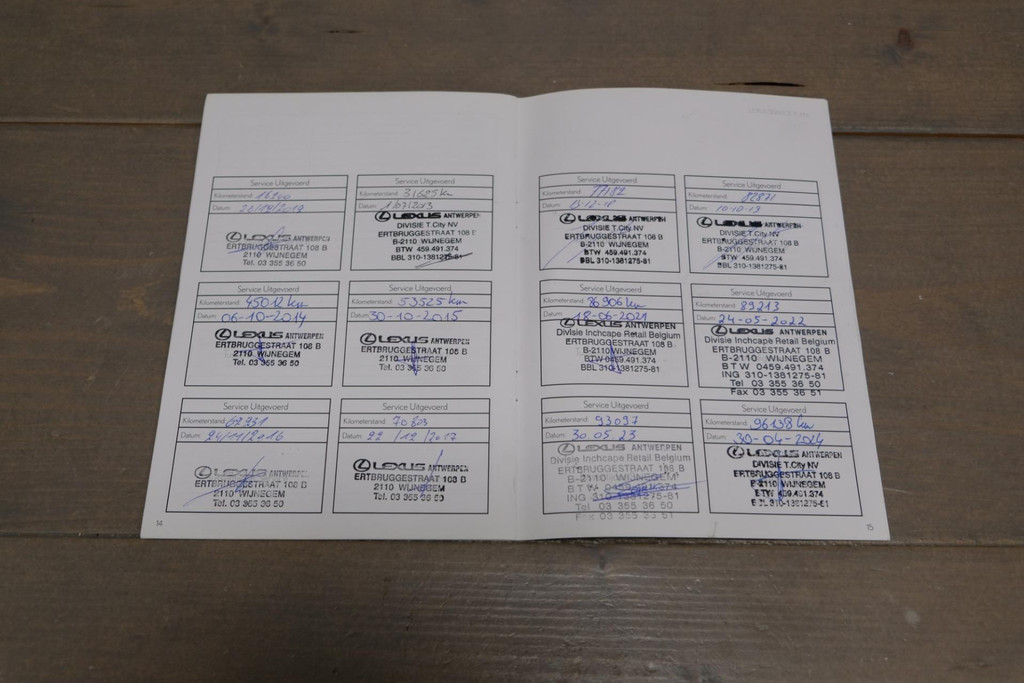 Service Uitgevoerd
Kilometerstand: 16200
Datum:
LEXUS ANTWERPEN
ERTBRUGGESTRAAT 108 B
2110 WIJNEGEM
Tel. 03 355 36 50
Service Uitgevoerd
Kilometerstand: 31625 km
Datum: 1/07/2013
LEXUS ANTWERPEN
DIVISIE T.City NV
ERTBRUGGESTRAAT 108 B
B-2110 WIJNEGEM
BTW 459.491.374
BBL 310-1381275-81
Service Uitgevoerd
Kilometerstand: 45012 km
Datum: 06-10-2014
LEXUS ANTWERPEN
ERTBRUGGESTRAAT 108 B
2110 WIJNEGEM
Tel. 03 355 36 50
Service Uitgevoerd
Kilometerstand: 53525 km
Datum: 30-10-2015
LEXUS ANTWERPEN
ERTBRUGGESTRAAT 108 B
2110 WIJNEGEM
Tel. 03 355 36 50
Service Uitgevoerd
Kilometerstand: 62931
Datum: 24/11/2016
LEXUS ANTWERPEN
ERTBRUGGESTRAAT 108 B
2110 WIJNEGEM
Tel. 03 355 36 50
Service Uitgevoerd
Kilometerstand: 70803
Datum: 22/12/2017
LEXUS ANTWERPEN
ERTBRUGGESTRAAT 108 B
2110 WIJNEGEM
Tel. 03 355 36 50
14
Service Uitgevoerd
Kilometerstand: 77182
Datum: 13-12-18
LEXUS ANTWERPEN
DIVISIE T.City NV
ERTBRUGGESTRAAT 108 B
B-2110 WIJNEGEM
BTW 459.491.374
BBL 310-1381275-81
Service Uitgevoerd
Kilometerstand: 82871
Datum: 10-10-19
LEXUS ANTWERPEN
DIVISIE T.City NV
ERTBRUGGESTRAAT 108 B
B-2110 WIJNEGEM
BTW 459.491.374
BBL 310-1381275-81
Service Uitgevoerd
Kilometerstand: 86906 km
Datum: 18-06-2021
LEXUS ANTWERPEN
Divisie Inchcape Retail Belgium
ERTBRUGGESTRAAT 108 B
B-2110 WIJNEGEM
BTW 0459.491.374
BBL 310-1381275-81
Service Uitgevoerd
Kilometerstand: 89213
Datum: 24-05-2022
LEXUS ANTWERPEN
Divisie Inchcape Retail Belgium
ERTBRUGGESTRAAT 108 B
B-2110 WIJNEGEM
BTW 0459.491.374
ING 310-1381275-81
Tel 03 355 36 50
Fax 03 355 36 51
Service Uitgevoerd
Kilometerstand: 93097
Datum: 30.05.23
LEXUS ANTWERPEN
Divisie Inchcape Retail Belgium
ERTBRUGGESTRAAT 108 B
B-2110 WIJNEGEM
BTW 0459.491.374
ING 310-1381275-81
Tel 03 355 36 50
Fax 03 355 36 51
Service Uitgevoerd
Kilometerstand: 96138 km
Datum: 30-04-2024
LEXUS ANTWERPEN
DIVISIE T.City NV
ERTBRUGGESTRAAT 108 B
B-2110 WIJNEGEM
BTW 459.491.374
BBL 310-1381275-81
15